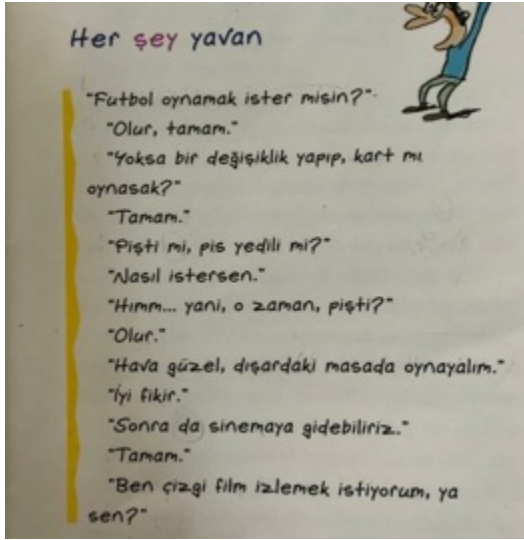 Her şey yavan
"Futbol oynamak ister misin?"
"Olur, tamam."
"Yoksa bir değişiklik yapıp, kart mı
oynasak?"
"Tamam."
"Pişti mi, pis yedili mi?"
"Nasıl istersen."
"Hımm... yani, o zaman, pişti?"
"Olur."
"Hava güzel, dışardaki masada oynayalım."
"İyi fikir."
"Sonra da sinemaya gidebiliriz."
"Tamam."
"Ben çizgi film izlemek istiyorum, ya
sen?"